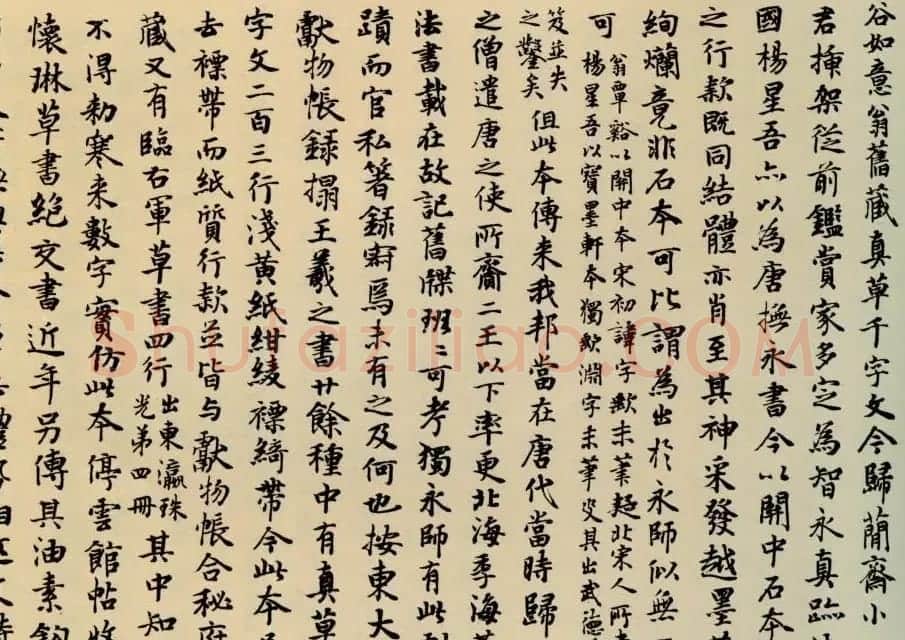 谷如意翁舊藏真草千字文今歸蕳齋小
君插架從前鑑賞家多定為智永真跡
國楊星吾亦以為唐撫永書今以關中石本
之行款既同結體亦肖至其神采發越墨
絢爛竟非石本可比謂為出於永師似無
翁覃谿以關中本宋初諱字欻末筆疑北宋人所
可楊星吾以寶墨軒本獨欻淵字末筆叟其出武德
笈並失
之鑿矣但此本傳来我邦當在唐代當時歸
之僧遣唐之使所齎二王以下率更北海季海
法書載在故記舊牒班〻可考獨永師有此
蹟而官私箸録寂焉未有之及何也按東大
獻物帳録搨王羲之書廿餘種中有真草
字文二百三行淺黄紙紺綾褾綺帶今此本
去褾帶而紙質行款並皆与獻物帳合秘府
藏又有臨右軍草書四行出東瀛珠光第四冊其中知
不得勑寒来數字實仿此本停雲館帖
懷琳草書絶交書近年另傳其油素鈎
shufaziliao.COM